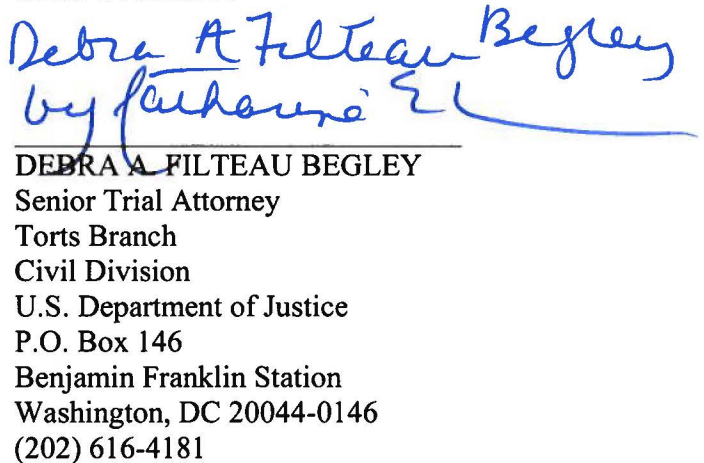 Debra A Filteau Begley
by Catharine E
DEBRA A. FILTEAU BEGLEY
Senior Trial Attorney
Torts Branch
Civil Division
U.S. Department of Justice
P.O. Box 146
Benjamin Franklin Station
Washington, DC 20044-0146
(202) 616-4181